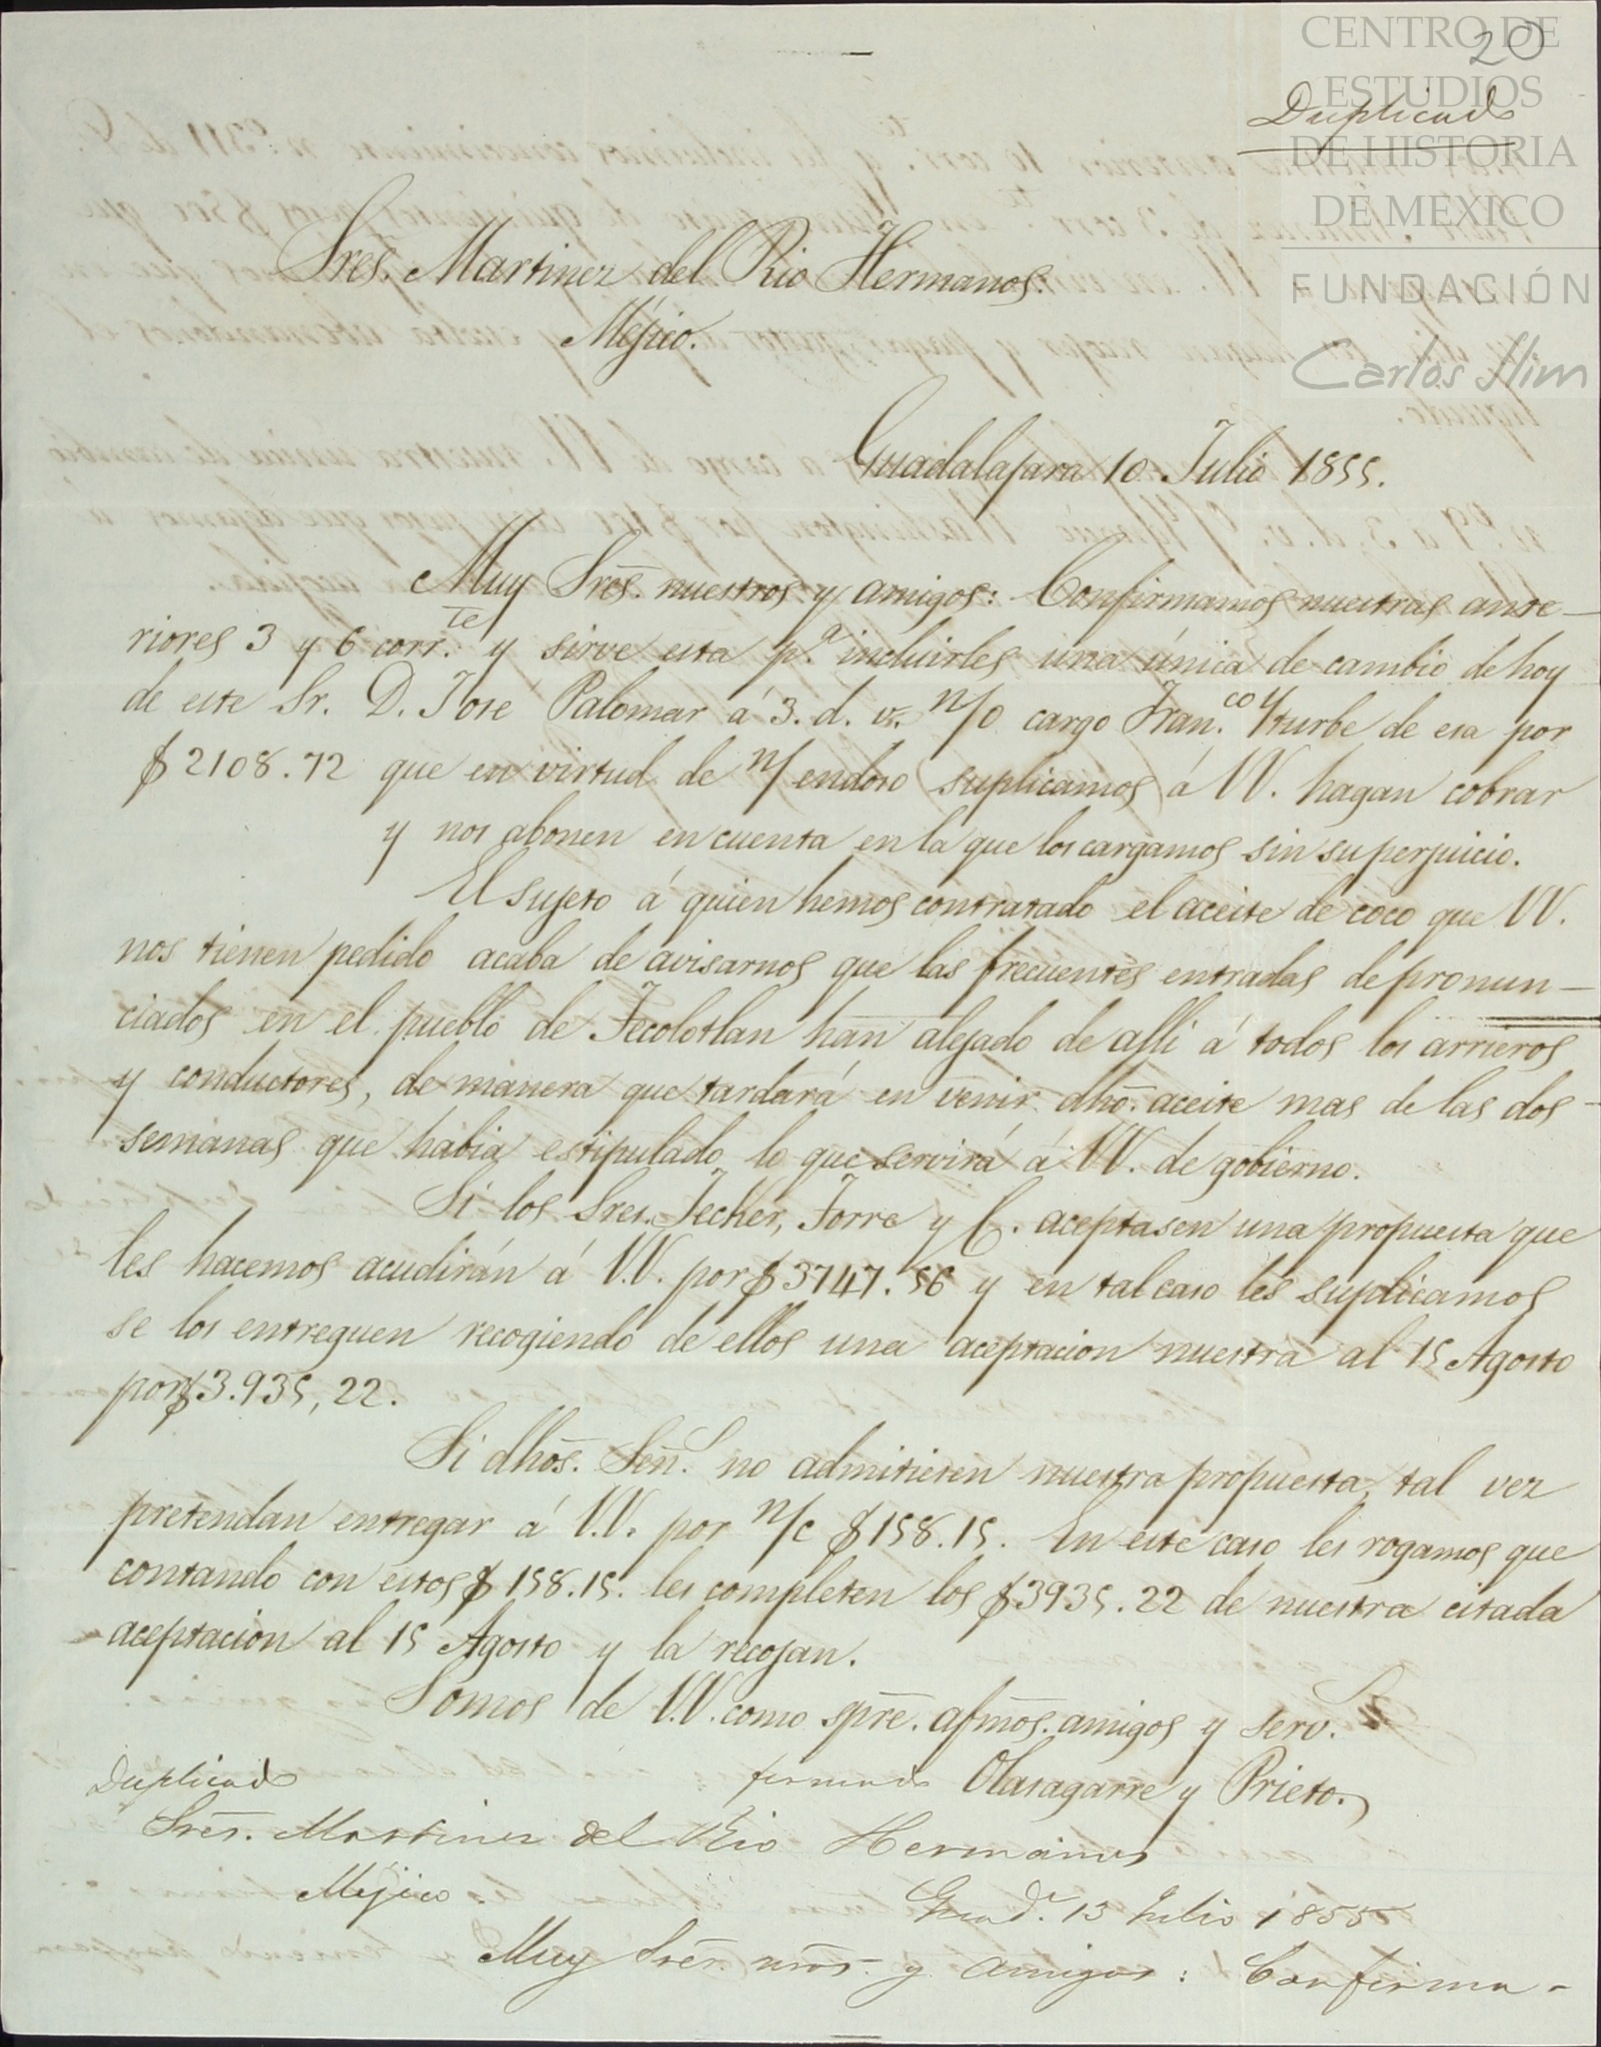 20
CENTRO DE
ESTUDIOS
DE HISTORIA
DE MEXICO
FUNDACIÓN
Carlos Slim
Duplicado
Sres. Martinez del Rio Hermanos.
Mejico.
Guadalajara 10 Julio 1855.
Muy Sres. nuestros y amigos: Confirmamos nuestras ante-
riores 3 y 6 corr.te y sirve esta p.a incluirles una única de cambio de hoy
de este Sr. D. José Palomar á 3. d. v. n/o cargo Fran.co Yturbe de esa por
$2108.72 que en virtud de n/ endoso suplicamos á VV. hagan cobrar
y nos abonen en cuenta en la que los cargamos sin superjuicio.
El sujeto á quien hemos contratado el aceite de coco que VV.
nos tienen pedido acaba de avisarnos que las frecuentes entradas de pronun-
ciados en el pueblo de Tecolotlan han alejado de alli á todos los arrieros
y conductores, de manera que tardará en venir dho. aceite mas de las dos
semanas que habia estipulado lo que servirá á VV. de gobierno.
Si los Sres. Jecker, Torre y C. aceptasen una propuesta que
les hacemos acudirán á V.V. por $3747.56 y en tal caso les suplicamos
se los entreguen recogiendo de ellos una aceptacion nuestra al 15 Agosto
por $3.935,22.
Si dhos. Señ.s no admitiesen nuestra propuesta, tal vez
pretendan entregar á V.V. por n/c $158.15. En este caso les rogamos que
contando con estos $158.15. les completen los $3935.22 de nuestra citada
aceptacion al 15 Agosto y la recojan.
Somos de V.V. como spre. afmos. amigos y serv.s
firmado Olasagarre y Prieto.
Duplicado
Sres. Martinez del Rio Hermanos
Méjico.
Guad.a 13 Julio 1855
Muy Sres. nros. y amigos: Confirma-